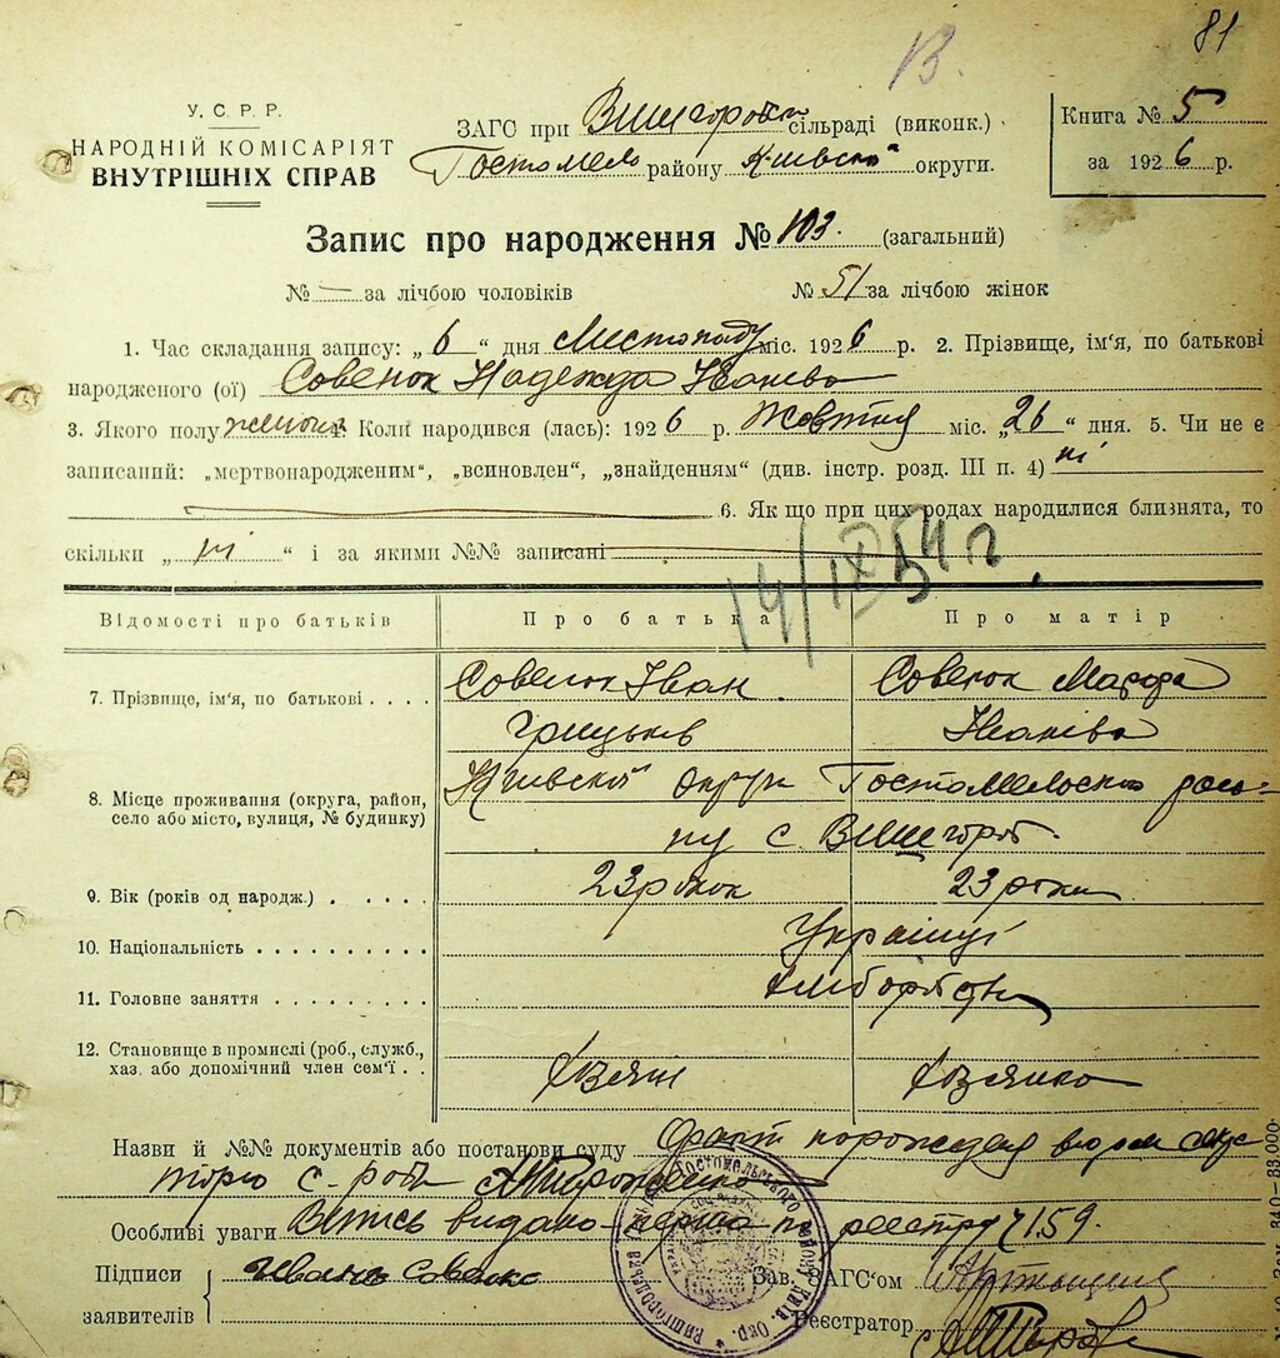 81
В.
У. С. Р. Р.
НАРОДНІЙ КОМІСАРІЯТ
ВНУТРІШНІХ СПРАВ
ЗАГС при Вишгородск сільраді (виконк.)
Гостомель району Київської округи.
Книга № 5
за 1926 р.
Запис про народження № 103. (загальний)
№ — за лічбою чоловіків № 51 за лічбою жінок
1. Час складання запису: „6“ дня Листопаду міс. 1926 р. 2. Прізвище, ім'я, по батькові
народженого (ої) Совенок Надежда Іванівна
3. Якого полу жіночя 4. Коли народився (лась): 1926 р. Жовтня міс. „26“ дня. 5. Чи не є
записаний: „мертвонародженим“, „всиновлен“, „знайденням“ (див. інстр. розд. III п. 4) ні
6. Як що при цих родах народилися близнята, то
скільки „ні“ і за якими №№ записані
14/IX 54 г
Відомості про батьків Про батька Про матір
7. Прізвище, ім'я, по батькові . . . . Совенок Іван Совенок Марфа
Грицьків Іванівна
8. Місце проживання (округа, район,
село або місто, вулиця, № будинку)
Київскої округи Гостомельского райо-
ну с. Вишгород.
9. Вік (років од народж.) . . . . . 23 роки 23 роки
10. Національність . . . . . . . . . . Українці
11. Головне заняття . . . . . . . . . Хліборобство
12. Становище в промислі (роб., служб.,
хаз. або допомічний член сем'ї . .
Хозяін Хозяйка
Назви й №№ документів або постанови суду Факт нарождения
с-ради
Особливі уваги Витись видано перша по реестру 7159.
Підписи
заявителів
Иванъ Совенко
Зав. ЗАГС'ом
Реєстратор